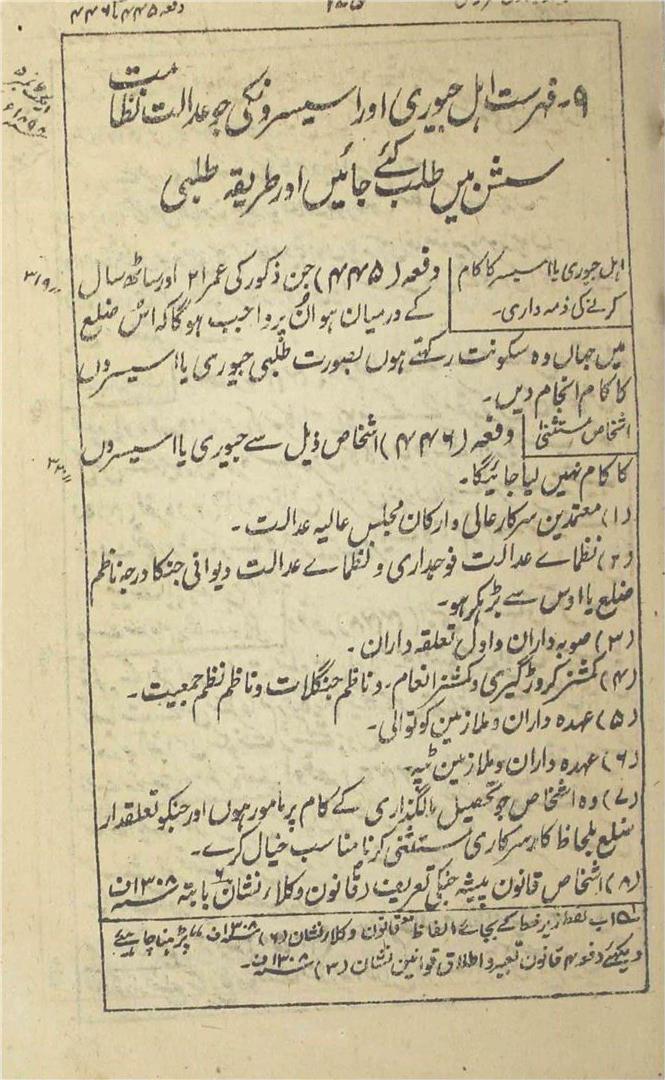 دفعہ ۴۴۵ تا ۴۴۶
۹۔ فہرست اہل جیوری اور اسیسرونکی جو عدالت نظامت
سشن میں طلب کئے جائیں اور طریقہ طلبی
اہل جیوری یا اسیسر کا کام
کرنے کی ذمہ داری۔
دفعہ (۴۴۵) جن ذکور کی عمر ۲۱ اور ساٹھ سال
کے درمیان ہو اُن پر واجب ہوگا کہ اُس ضلع
میں جہاں وہ سکونت رکھتے ہوں بصورت طلبی جیوری یا اسیسروں
کا کام انجام دیں۔
اشخاص مستثنیٰ
دفعہ (۴۴۶) اشخاص ذیل سے جیوری یا اسیسروں
کا کام نہیں لیا جائیگا۔
(۱) معتمدین سرکار عالی و ارکان مجلس عالیہ عدالت۔
(۲) نظمائے عدالت فوجداری و نظمائے عدالت دیوانی جنکا درجہ ناظم
ضلع یا اوس سے بڑہکر ہو۔
(۳) صوبہ داران و اول تعلقہ داران۔
(۴) کمشنر کروڑگیری و کمشنر انعام۔ و ناظم جنگلات و ناظم نظم جمعیت۔
(۵) عہدہ داران و ملازمین کوتوالی۔
(۶) عہدہ داران و ملازمین ٹپہ۔
(۷) وہ اشخاص جو تحصیل مالگذاری کے کام پر مامور ہوں اور جنکو تعلقدار
ضلع بلحاظ کار سرکاری مستثنیٰ کرنا مناسب خیال کرے۔
(۸) اشخاص قانون پیشہ جنکی تعریف قانون وکلاء نشان ۶ بابتہ سنہ ۱۳۰۸ف
اب لفظ زیر خط کے بجائے الفاظ "قانون وکلاء نشان (۶) سنہ ۱۳۰۸ف" پڑہنا چاہیئے
دیکھئے دفعہ ۴ قانون تعبیر و اطلاق قوانین نشان (۳) سنہ ۱۳۰۸ف۔
۳۱۹